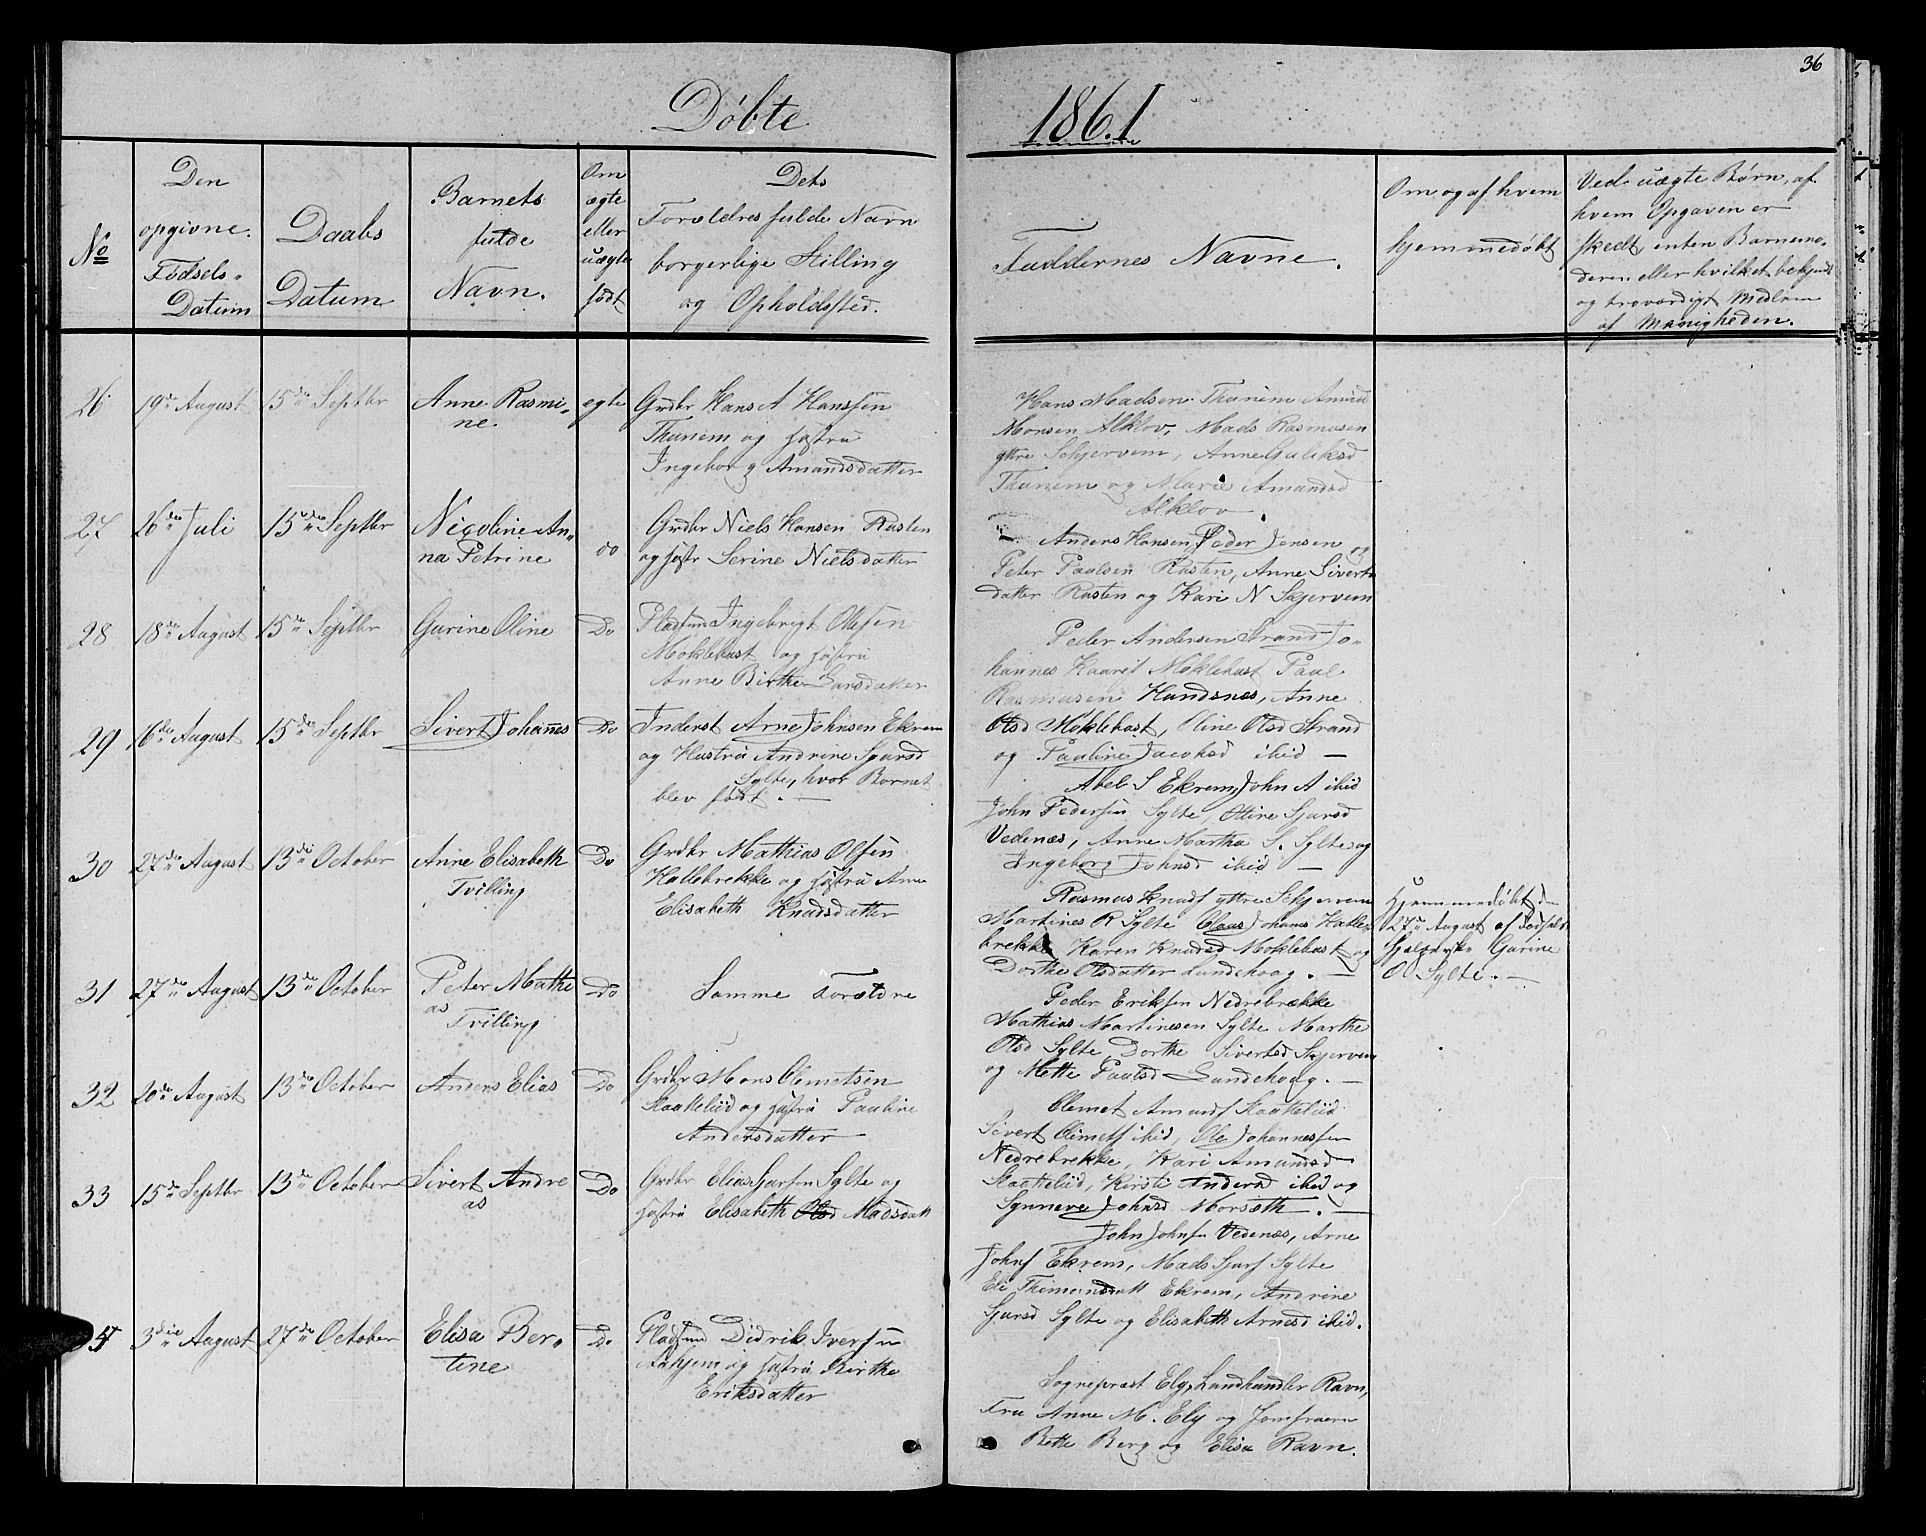 36
Døbte
1861
No
Den
opgivne
Fødsels-
Datum
Daabs
Datum
Barnets
fulde
Navn.
Om
egte
eller
uægte
født
Dets
Forældres fulde Navn
borgerlige Stilling
og Opholdssted.
Faddernes Navne.
Om og af hvem
hjemmedøbt
Ved uægte Børn, af
hvem Opgaven er
skedt enten Barnemo-
deren eller hvilket bekjendt
og troværdigt Medlem
af Menigheden.
26 19de August 15de Septbr Anne Rasmi-
ne
egte Grdbr Hans A Hanssen
Thunem og Hustru
Ingeborg Amandsdatter
Hans Madsen Thunem Amund
Monsen Alklov, Mads Rasmusen
yttre Skjervem, Anne Guliksd
Thunem og Marie Amundsd
Alklov.
27 26de Juli 15de Septbr Nicoline An-
na Petrine
do Grdbr Niels Hansen Rusten
og Hustr Serine Nielsdatter
Anders Hansen, Peder Jensen og
Peter Paulsen Rusten, Anne Siverts
datter Rusten og Kari N Skjervem
28 18de August 15de Septbr Gurine Oline Do
Pladsm Ingebrigt Olesen
Moklebust og Hustru
Anne Birthe Larsdatter
Peder Andersen Strand Jo-
hannes Kaarst Moklebust Paul
Rasmusen Hundsnes, Anne
Olsd Moklebust, Oline Olsd Strand
og Pauline Jacobsd ibid —
29 16de August 15de Septbr Sivert Johannes Do
Inderst Arne Johnsen Ekrem
og Hustru Andrine Sjursd
Sylte, hvor Barnet
blev født. —
Abel S Ekrem, John A ibid
John Pedersen Sylte, Oline Sjursd
Vedenæs, Anne Martha S. Sylte og
Ingeborg Johnsd ibid —
30 27de August 13de October Anne Elisabeth
Tvilling
Do Grdbr Mathias Olsen
Hallebrekke og Hustru Anne
Elisabeth Knudsdatter
Rasmus Knuds yttre Skjervem
Martines R Sylte Claus Johanns Halle-
brekke Karen Knudsd Moklebust og
Dorthe Olsdatter Lundehoag. —
Hjemmedøbt den
27de August af
Gurine
O Sylte. —
31 27de August 13de October Peter Mathi
as
Tvilling
Do Samme Forældre
Peder Eriksen Nedrebrække
Mathias Martinesen Sylte Marthe
Olsd Sylte Dorthe Sivertsd Skjervem
og Mette Paulsd Lundehoag. —
32 20de August 13de October Anders Elias Do
Grdbr Mons Clemetsen
Staakeliid og Hustru Pauline
Andersdatter
Clemet Amunds Staakeliid
Sivert Clemets ibid, Ole Johannessen
Nedrebrekke, Kari Amundsd
Staakeliid, Kirsti Andersd ibid og
Synneve Johnsd Morsæth. —
33 15de Septbr 13de October Sivert Andre
as
Do Grdbr Elias Sjursen Sylte og
Hustru Elisabeth Olsd Madsdatt
John Johnsen Vedenæs, Arne
Johns Ekrem, Mads Sjurs Sylte
Eli Thimandsdatt Ekrem, Andrine
Sjursd Sylte og Elisabeth Arnesd ibid.
34 3die August 27de October Elisa Ber-
tine
Do Pladsm Didrik Iversen
Aahjem og Hustru Birthe
Eriksdatter
Sognepræst Ely, Landhandler Ravn,
Fru Anne M. Ely og Jomfruerne
Bette Berg og Elisa Ravn.